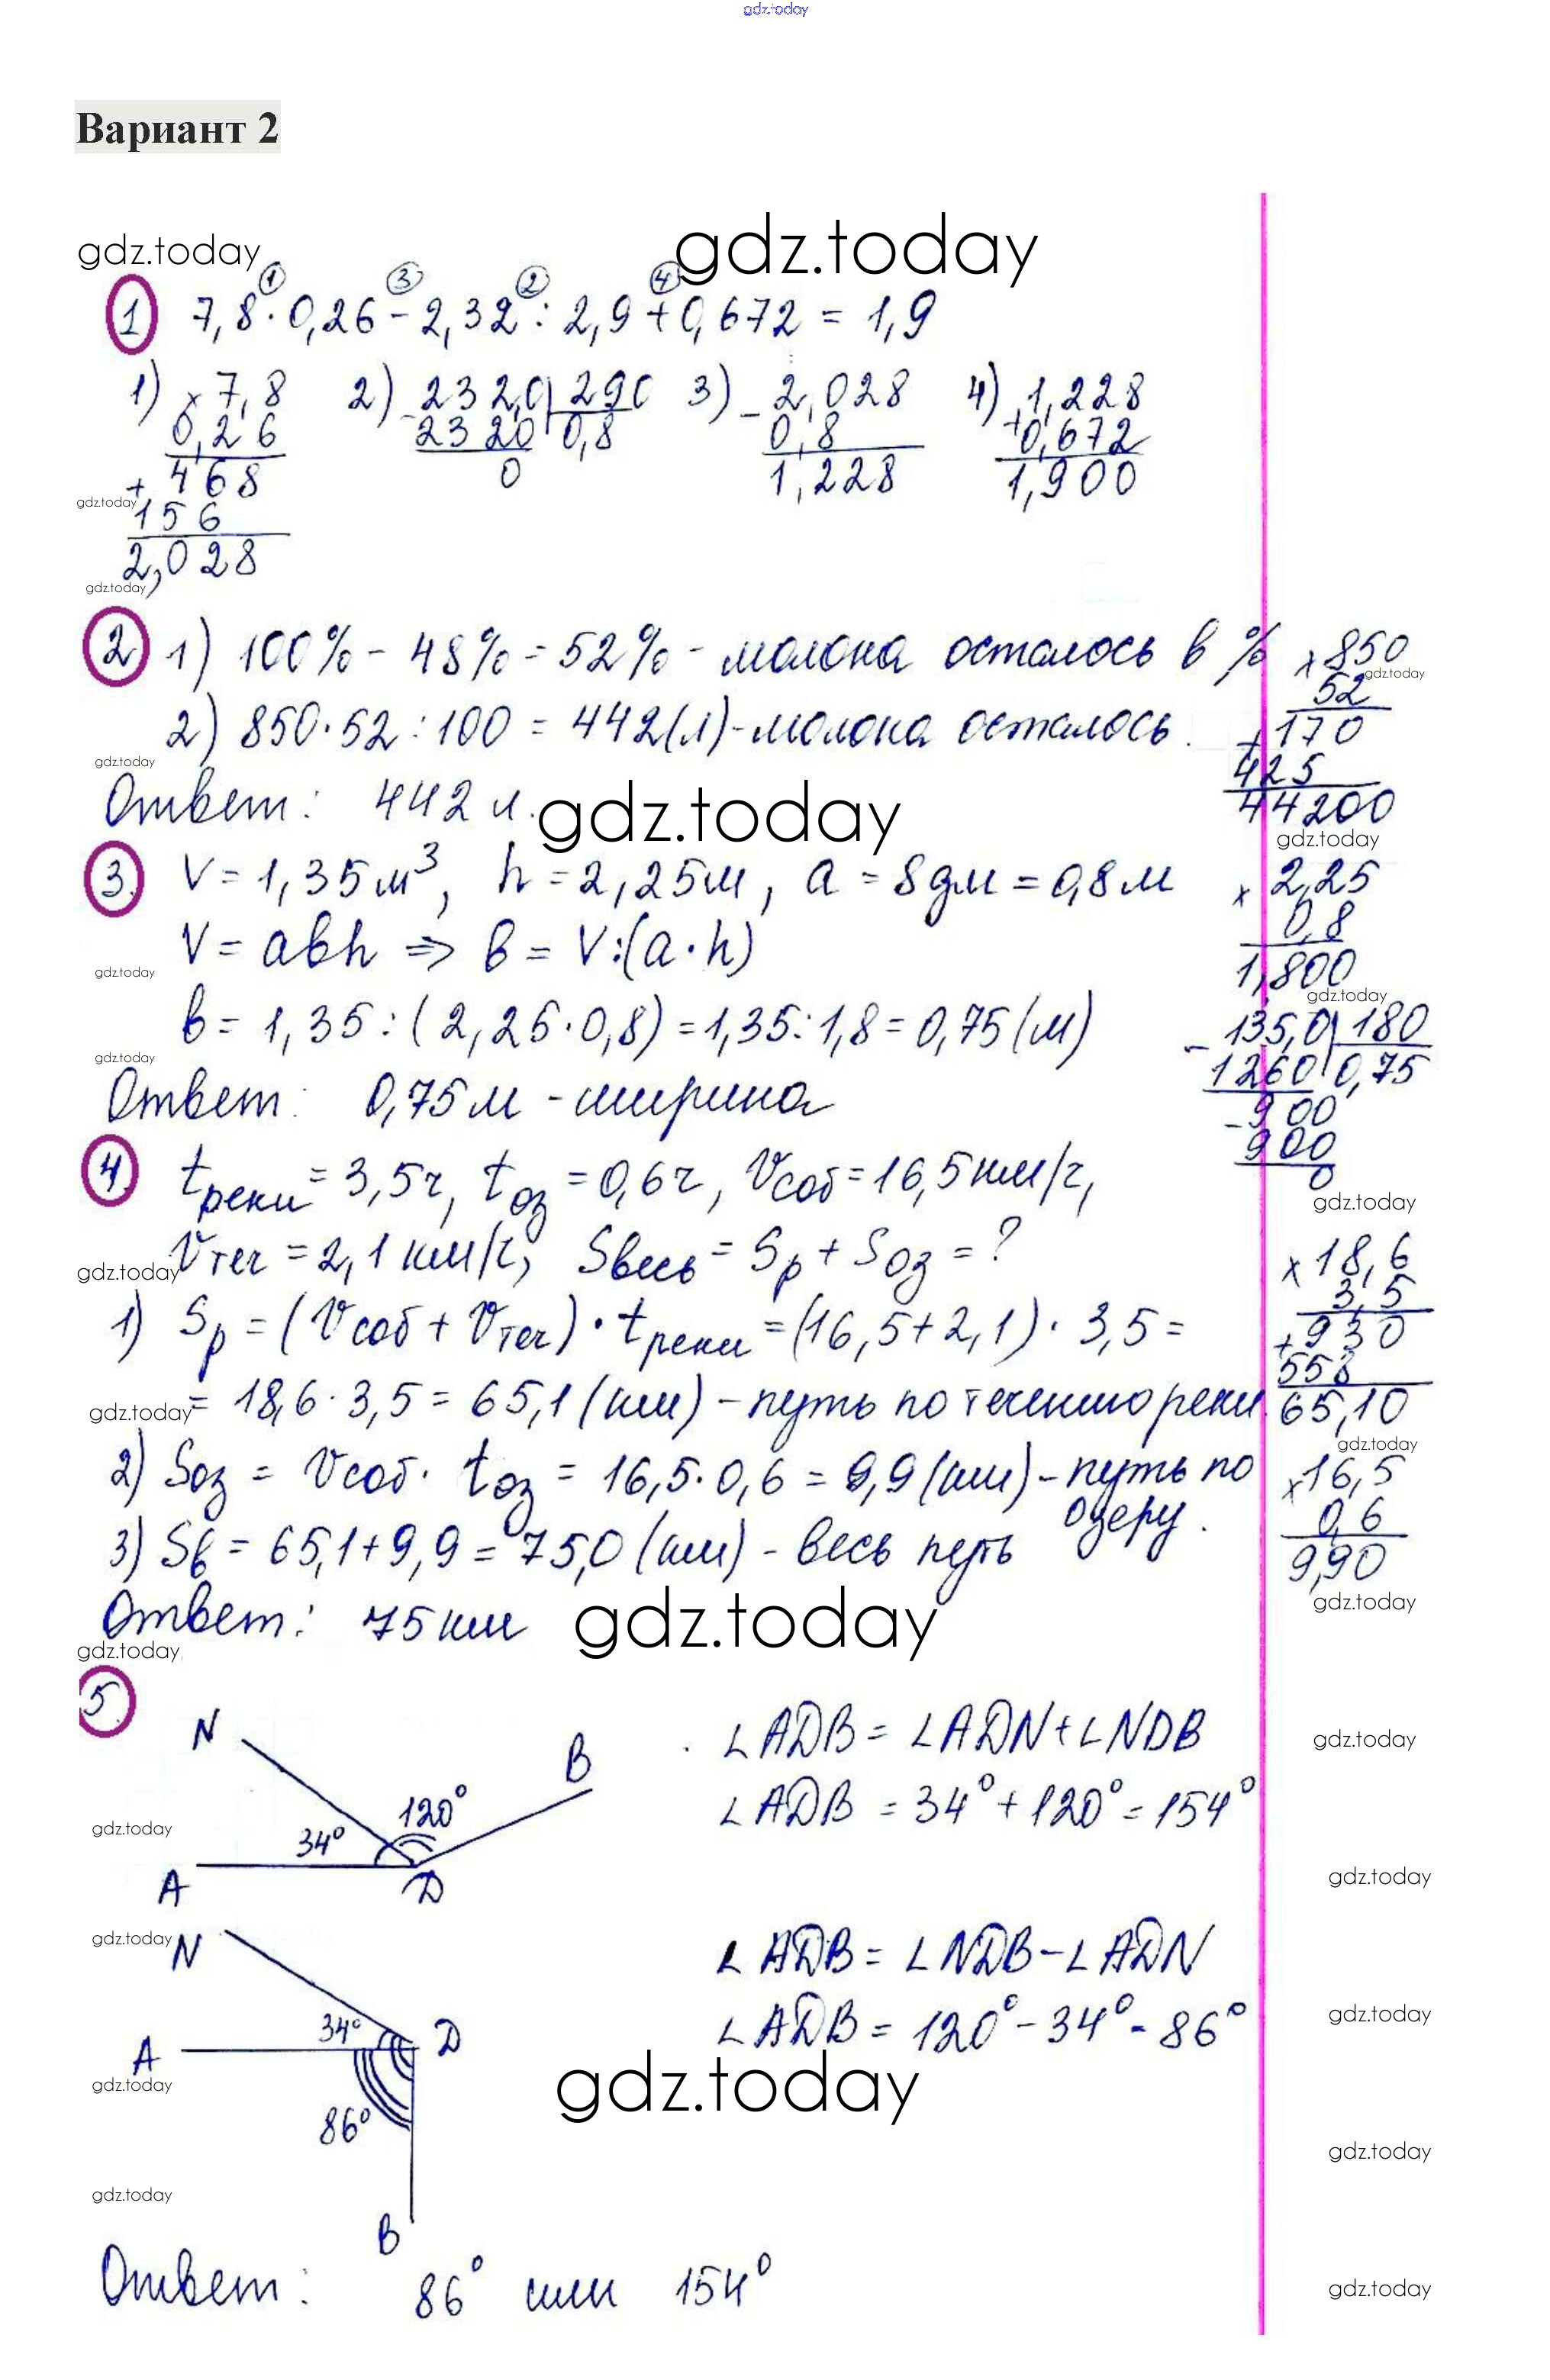 gdz.today
Вариант 2
gdz.today gdz.today
① ③ ② ④
1 7,8 · 0,26 - 2,32 : 2,9 + 0,672 = 1,9
1) × 7,8 2) 232,0 | 290 3) - 2,028 4) + 1,228
0,26 - 2320 0,8 0,8 0,672
+ 468 0 1,228 1,900
gdz.today
156
2,028
gdz.today
2 1) 100% - 48% = 52% - молока осталось в % × 850
gdz.today
52
2) 850 · 52 : 100 = 442(л) - молока осталось. + 170
gdz.today 425
Ответ: 442 л. gdz.today 44200
gdz.today
3. V = 1,35 м³, h = 2,25 м, a = 8 дм = 0,8 м × 2,25
0,8
V = abh ⇒ b = V:(a·h) 1,800
gdz.today gdz.today
b = 1,35 : (2,25 · 0,8) = 1,35 : 1,8 = 0,75 (м) - 135,0 | 180
gdz.today 1260 0,75
Ответ: 0,75 м - ширина - 900
900
0
4. tреки = 3,5 ч, tоз = 0,6 ч, Vсоб = 16,5 км/ч,
gdz.today
gdz.today Vтеч = 2,1 км/ч, Sвесь = Sр + Sоз = ? × 18,6
3,5
1) Sр = (Vсоб + Vтеч) · tреки = (16,5 + 2,1) · 3,5 = + 930
558
gdz.today = 18,6 · 3,5 = 65,1 (км) - путь по течению реки. 65,10
gdz.today
2) Sоз = Vсоб · tоз = 16,5 · 0,6 = 9,9 (км) - путь по × 16,5
озеру. 0,6
3) Sв = 65,1 + 9,9 = 75,0 (км) - весь путь 9,90
Ответ: 75 км gdz.today gdz.today
gdz.today
5.
N ∠ADB = ∠ADN + ∠NDB gdz.today
B
120° ∠ADB = 34° + 120° = 154°
gdz.today 34°
A D gdz.today
gdz.today N ∠ADB = ∠NDB - ∠ADN
34° D ∠ADB = 120° - 34° = 86° gdz.today
A
gdz.today gdz.today
86°
gdz.today
gdz.today
B
Ответ: 86° или 154° gdz.today